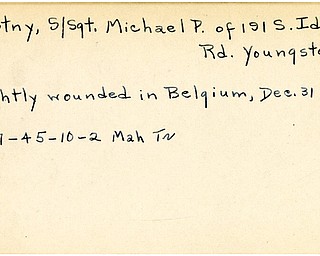 tny, S/Sgt. Michael P. of 191 S. Id
Rd. Youngst
htly wounded in Belgium, Dec. 31
-45-10-2 Mah Tn